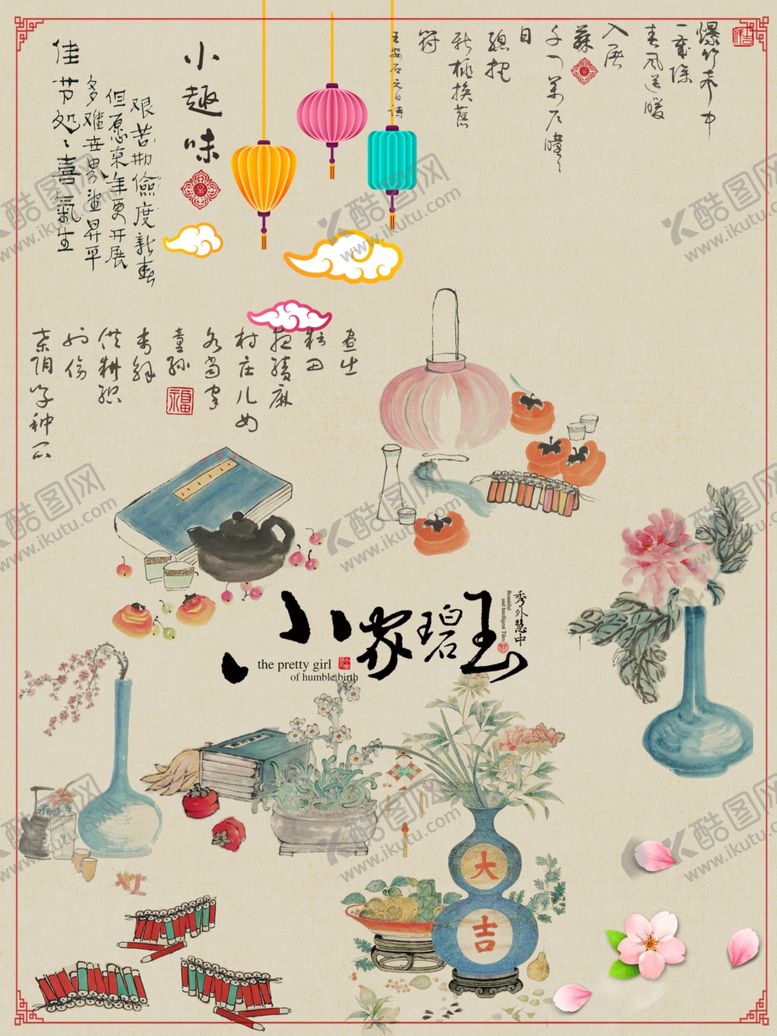 爆竹声中
一歲除
春风送暖
入屠
蘇
千门万户曈曈
日
總把
新桃换舊
符
王安石元日詩
小趣味
艰苦勤儉度新春
但愿来年更开展
多难世界盡昇平
佳节处处喜氣生
昼出
耘田
夜绩麻
村庄儿女
各当家
童孙
未解
供耕织
也傍
桑阴学种瓜
小家碧玉
秀外慧中
the pretty girl
of humble birth
大吉
酷图网
www.ikutu.com